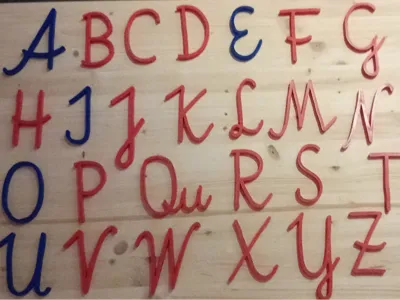 A B C D E F G
H I J K L M N
O P Qu R S T
U V W X Y Z